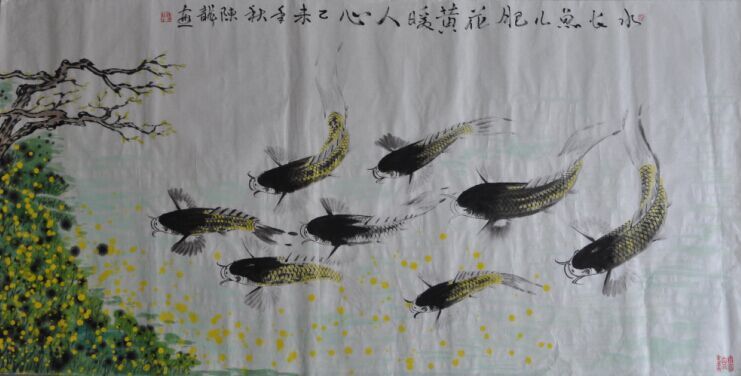 水长鱼儿肥花黄暖人心己未年秋陈龙画